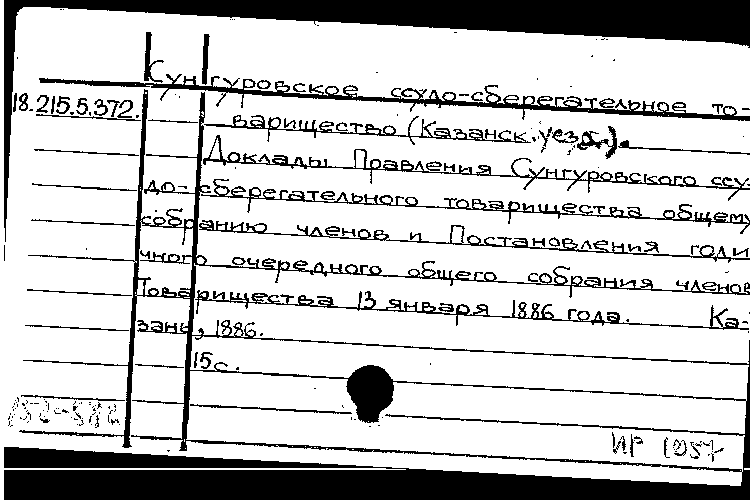 Сунгуровское ссудо-сберегательное то-
18.215.5.372.
варищество (Казанск. уезд.).
Доклады Правления Сунгуровского ссу
до-сберегательного товарищества общему
собранию членов и Постановления годи
чного очередного общего собрания членов
Товарищества 13 января 1886 года. Ка-
зань, 1886.
15 с.
152-582
ИР 1057